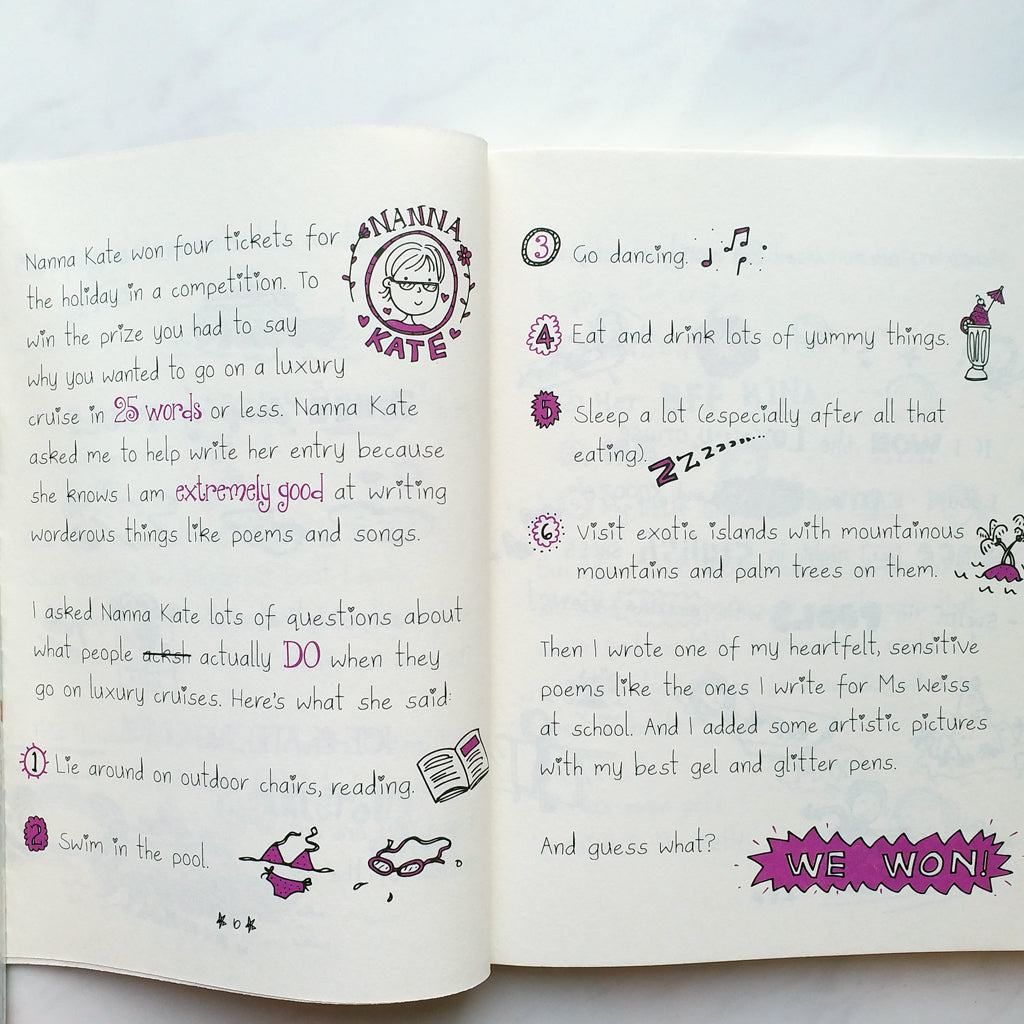 Nanna Kate won four tickets for
the holiday in a competition. To
win the prize you had to say
why you wanted to go on a luxury
cruise in 25 words or less. Nanna Kate
asked me to help write her entry because
she knows I am extremely good at writing
worderous things like poems and songs.
NANNA
KATE
I asked Nanna Kate lots of questions about
what people acksh actually DO when they
go on luxury cruises. Here's what she said:
1 Lie around on outdoor chairs, reading.
2 Swim in the pool.
6
3 Go dancing.
4 Eat and drink lots of yummy things.
5 Sleep a lot (especially after all that
eating).
ZZzzzzz...
6 Visit exotic islands with mountainous
mountains and palm trees on them.
Then I wrote one of my heartfelt, sensitive
poems like the ones I write for Ms Weiss
at school. And I added some artistic pictures
with my best gel and glitter pens.
And guess what? WE WON!